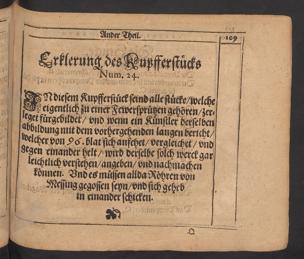 Ander Theil. 109
Erklerung des Kupfferstücks
Num. 24.
IN diesem Kupfferstück seind alle stücke/ welche
eigentlich zu einer Fewerspruͤtzen gehoͤren/ zer-
leget fürgebildet/ vnd wenn ein Künstler derselben
abbildung mit dem vorhergehenden langen bericht/
welcher von 96. blat sich anfehet/ vergleichet/ vnd
gegen einander helt/ wird derselbe solch werck gar
leichtlich verstehen/ angeben/ vnd nachmachen
können. Vnd es müssen allda Röhren von
Messing gegossen seyn/ vnd sich geheb
in einander schicken.